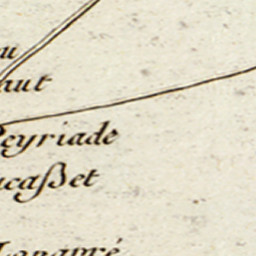 u
aut
Peyriade
caßet
Lanapré